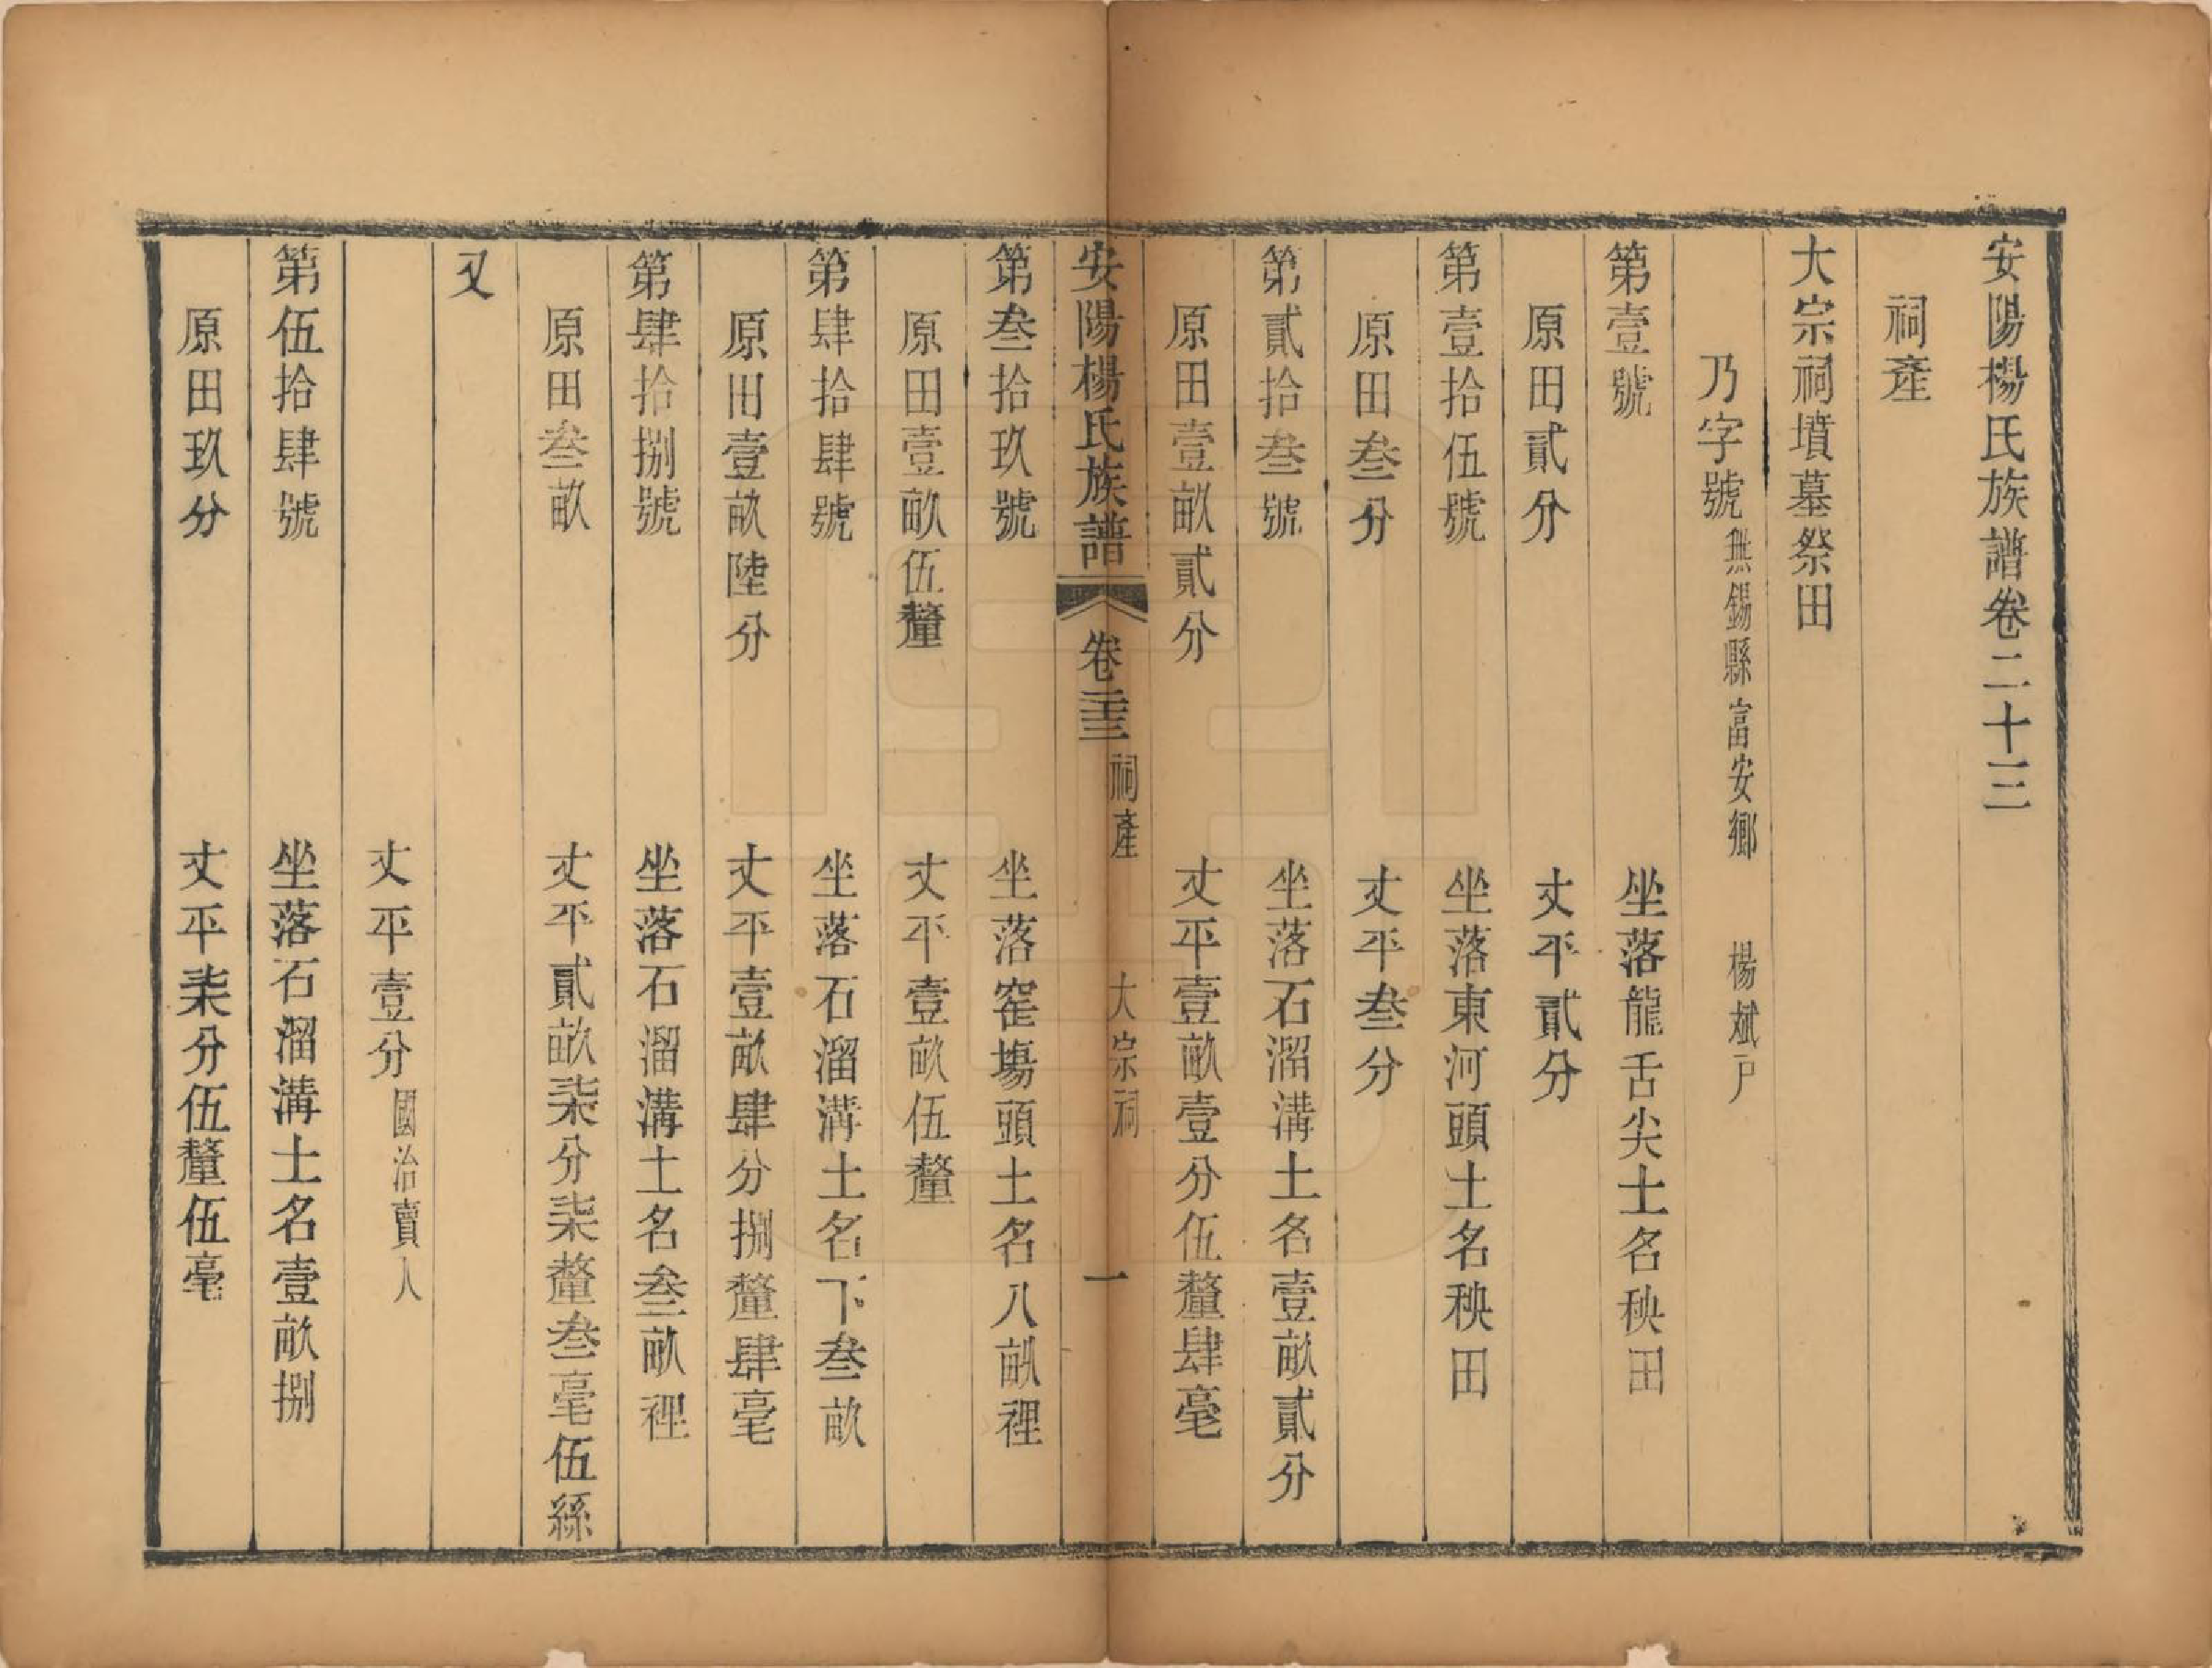 安陽楊氏族譜卷二十三
祠產
大宗祠墳墓祭田
乃字號 無錫縣富安鄉 楊斌戶
第壹號 坐落龍舌尖土名秧田
原田貳分 丈平貳分
第壹拾伍號 坐落東河頭土名秧田
原田叁分 丈平叁分
第貳拾叁號 坐落石溜溝土名壹畝貳分
原田壹畝貳分 丈平壹畝壹分伍釐肆毫
安陽楊氏族譜 卷二十三 祠產 大宗祠 一
第叁拾玖號 坐落窑塲頭土名八畝裡
原田壹畝伍釐 丈平壹畝伍釐
第肆拾肆號 坐落石溜溝土名下叁畝
原田壹畝陸分 丈平壹畝肆分捌釐肆毫
第肆拾捌號 坐落石溜溝土名叁畝裡
原田叁畝 丈平貳畝柒分柒釐叁毫伍絲
又
丈平壹分 國治賣入
第伍拾肆號 坐落石溜溝土名壹畝捌
原田玖分 丈平柒分伍釐伍毫